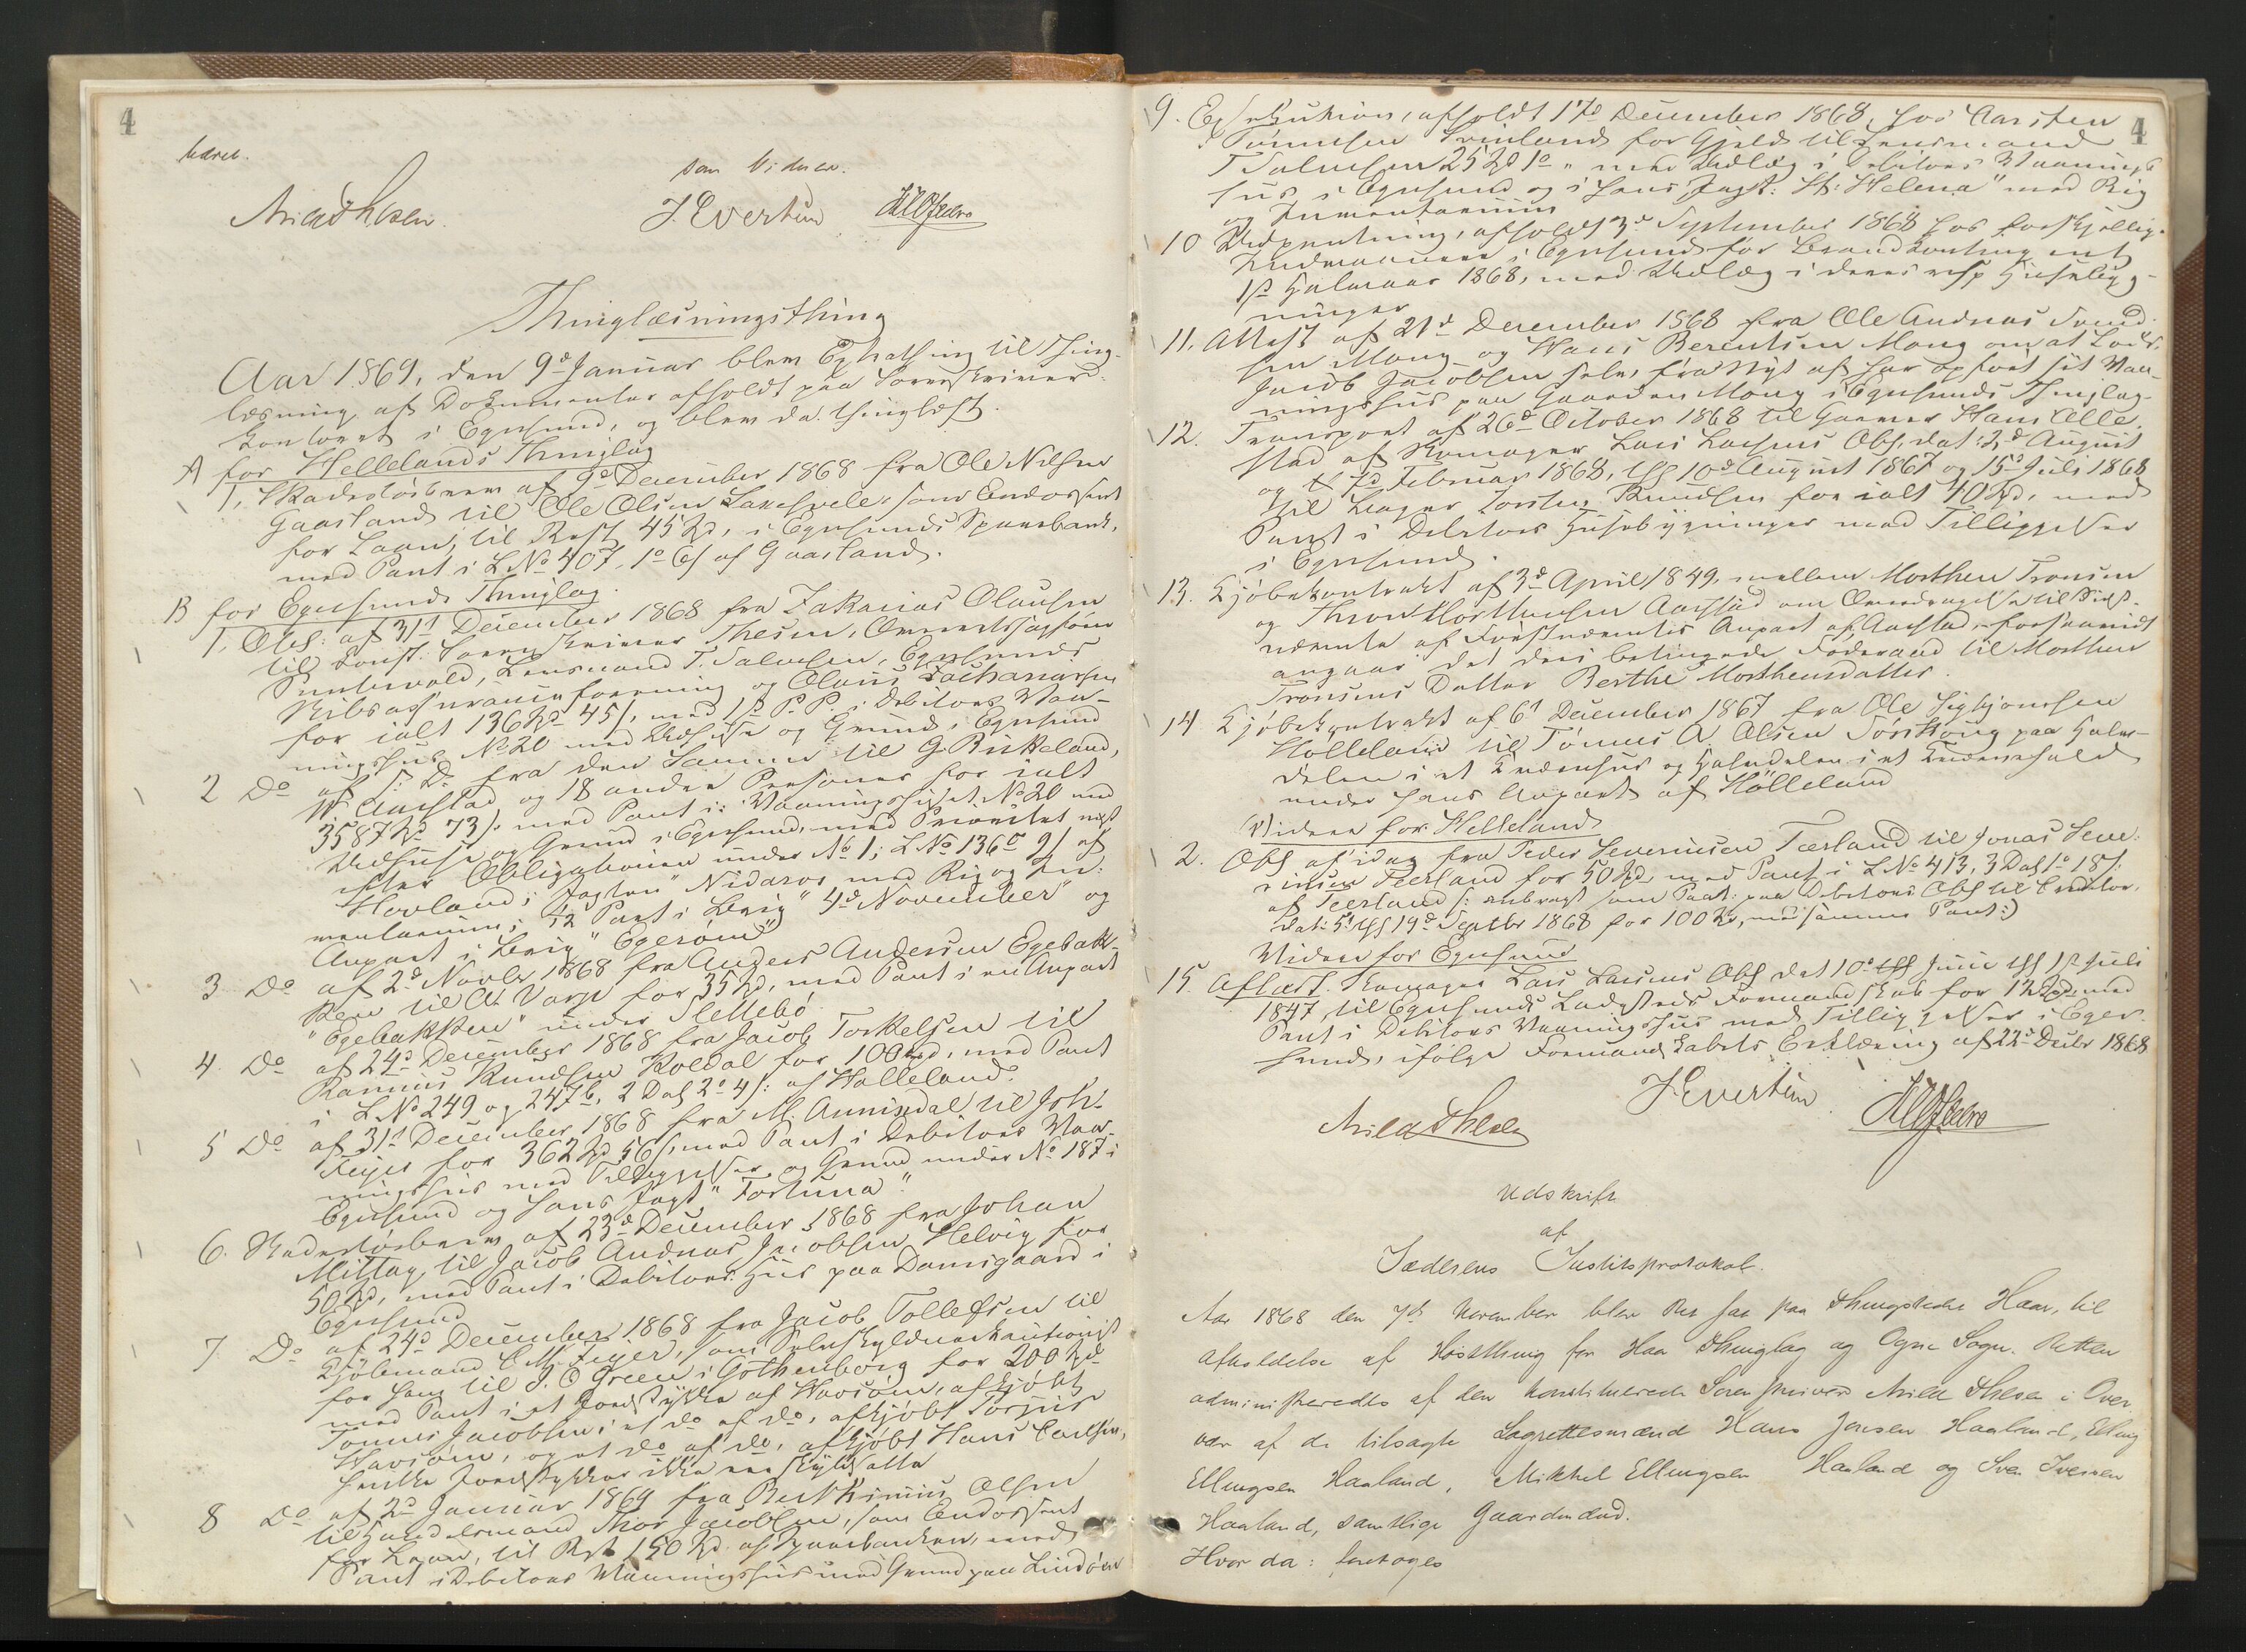 4
været.
som Vidner.
Arild Thesen. J. Evertsen
Thinglæsningsthing
Aar 1869, den 9d Januar blev Extrathing til Thing-
læsning af Dokumenter afholdt paa Sorenskriver-
kontoret i Egersund, og blev da thinglæst.
A for Hellelands Thinglag
1, Skadesløsbrev af 9d December 1868 fra Ole Nilsen
Gaasland til Ole Olsen som Endossent
for Laan, til Rest 45 Spd, i Egersunds Sparebank,
med Pant i L No 407, af Gaasland.
B for Egersunds Thinglag.
1, Obl: af 31t December 1868 fra Zakarias Olausen
til Const. Sorenskriver Thesen, Overretssagfører
Lensmand T. Salvesen, Egersunds
Skibsassuranceforening og Olaus Zachariasen
for ialt 136 Spd 45 s, med 1st P. P. i Debitors Vaa-
ningshus No 20 med Udhuse og Grund i Egersund
2 Do af S. D. fra den Samme til G. Birkeland,
Aarstad og 18 andre Personer for ialt
3587 Spd 73 s. med Pant i: Vaaningshuset No 20 med
Udhuse og Grund i Egersund, med Prioritet næst
efter Obligationen under No 1; L No 136 af
Hovland; Jagten "Nidaros" med Rig og In-
ventarium; 1/2 Part i Brig "4d November" og
Anpart i Brig "Egerøen"
3 Do af 2d Novbr 1868 fra Anders Andersen Egebak-
ken til for 35 Spd, med Pant i en Anpart
"Egebakken" under Slettebø
4. Do af 24d December 1868 fra Jacob Torkelsen til
Rasmus Knudsen Koldal for 100 Spd, med Pant
i L No 249 og 247b, 2 Dal af Hølleland.
5 Do af 31t December 1868 fra M. Annisdal til Joh.
Feyer for 362 Spd 56 s, med Pant i Debitors Vaa-
ningshus med Tilliggelser og Grund under No 187 i
Egersund og hans Jagt "Fortuna".
6. Skadesløsbrev af 23d December 1868 fra Johan
Mittag til Jacob Andreas Jacobsen Helvig for
50 Spd, med Pant i Debitors Hus paa Damsgaard i
Egersund
7. Do af 24d December 1868 fra Jacob Tollefsen til
Kjøbmand C. M. Feyer, som Selvskyldnerkautionist
for ham til J. O. Green i Gothenborg for 200 Spd
med Pant i et Jordstykke af Havsøen, afkjøbt
Tønnes Jacobsen; et do af do, afkjøbt Torjus
Havsøen, og et do af do, afkjøbt Hans Carlsen,
hvilke Jordstykker ikke ere skyldsatte
8 Do af 2d Januar 1869 fra Olsen
til Handelsmand Thor Jacobsen, som Endossent
for Laan, til Rest 150 Spd af Sparebanken, med
Pant i Debitors Vaaningshus med Grund paa Lindøen
4
9. Exekution, afholdt 17d December 1868, hos Carsten
Tønnesen for Gjeld til Lensmand
T Salvesen 25 Spd med Udlæg i Debitors Vaanings-
hus i Egersund og i hans Jagt: "St: Helena" med Rig
og Inventarium
10 Udpantning, afholdt 3d September 1868 hos forskjellige
Indvaanere i Egersund for Brandkontingent
1st Halvaar 1868, med Udlæg i deres resp Husebyg-
ninger
11. Attest af 21d December 1868 fra Ole Andreas Svend-
sen Mong og Hans Berentsen Mong om at Lods
Jacob Jacobsen selv, fra Nyt af har opført sit Vaa-
ningshus paa Gaarden Mong i Egersunds Thinglag.
12. Transport af 26d October 1868 til Garver Hans Olle-
stad af Skomager Lars Larsens Obl. dat: 2d August
og 7d Februar 1868, thl 10d August 1867 og 15d Juli 1868
til Bager Torsten Knudsen for ialt 40 Spd, med
Pant i Debitors Husebygninger med Tilliggelser
i Egersund.
13. Kjøbekontrakt af 3d April 1849, mellem Morthen Tronsen
og Thron Morthensen Aarstad om Overdragelse til Sidst-
nævnte af Førstnævntes Anpart af Aarstad, forsaavidt
angaar det deri betingede Føderaad til Morthen
Tronsens Datter Berthe Morthensdatter.
14 Kjøbekontrakt af 6t December 1867 fra Ole Sigbjørnsen
Hølleland til Tønnes A Olsen paa Halv-
delen i et Kværnhus og Halvdelen i et Kværnefald
under hans Anpart af Hølleland
Videre for Helleland
2. Obl af idag fra Peder Severinsen Terland til Jonas Seve-
rinsen Terland for 50 Spd med Pant i L No 413, 3 Dal 1o 18 s.
af Terland (: anbragt som Paat: paa Debitors Obl til Creditor,
dat: 5t thl 19d Septbr 1868 for 100 Spd, med samme Pant:)
Videre for Egersund
15. Aflæst. Skomager Lars Larsens Obl dat 10d Juni thl 1st Juli
1847, til Egersunds Ladesteds Formandskab for 12 Spd, med
Pant i Debitors Vaaningshus med Tilliggelser i Eger-
sund, ifølge Formandskabets Erklæring af 22d Decbr 1868
Arild Thesen J. Evertsen
Udskrift
af
Jæderens Justitsprotokol.
Aar 1868 den 7de November blev Ret sat paa Thingstedet Haar, til
Afholdelse af Høstthing for Haa Thinglag og Ogne Sogn. Retten
administreredes af den konstituerede Sorenskriver Arild Thesen i Over
vær af de tilsagte Lagrettesmænd Hans Jensen Haaland, Elling
Ellingsen Haaland, Mikkel Ellingsen Haaland og Sven Iversen
Haaland, samtlige Gaardmænd.
Hvor da: foretoges